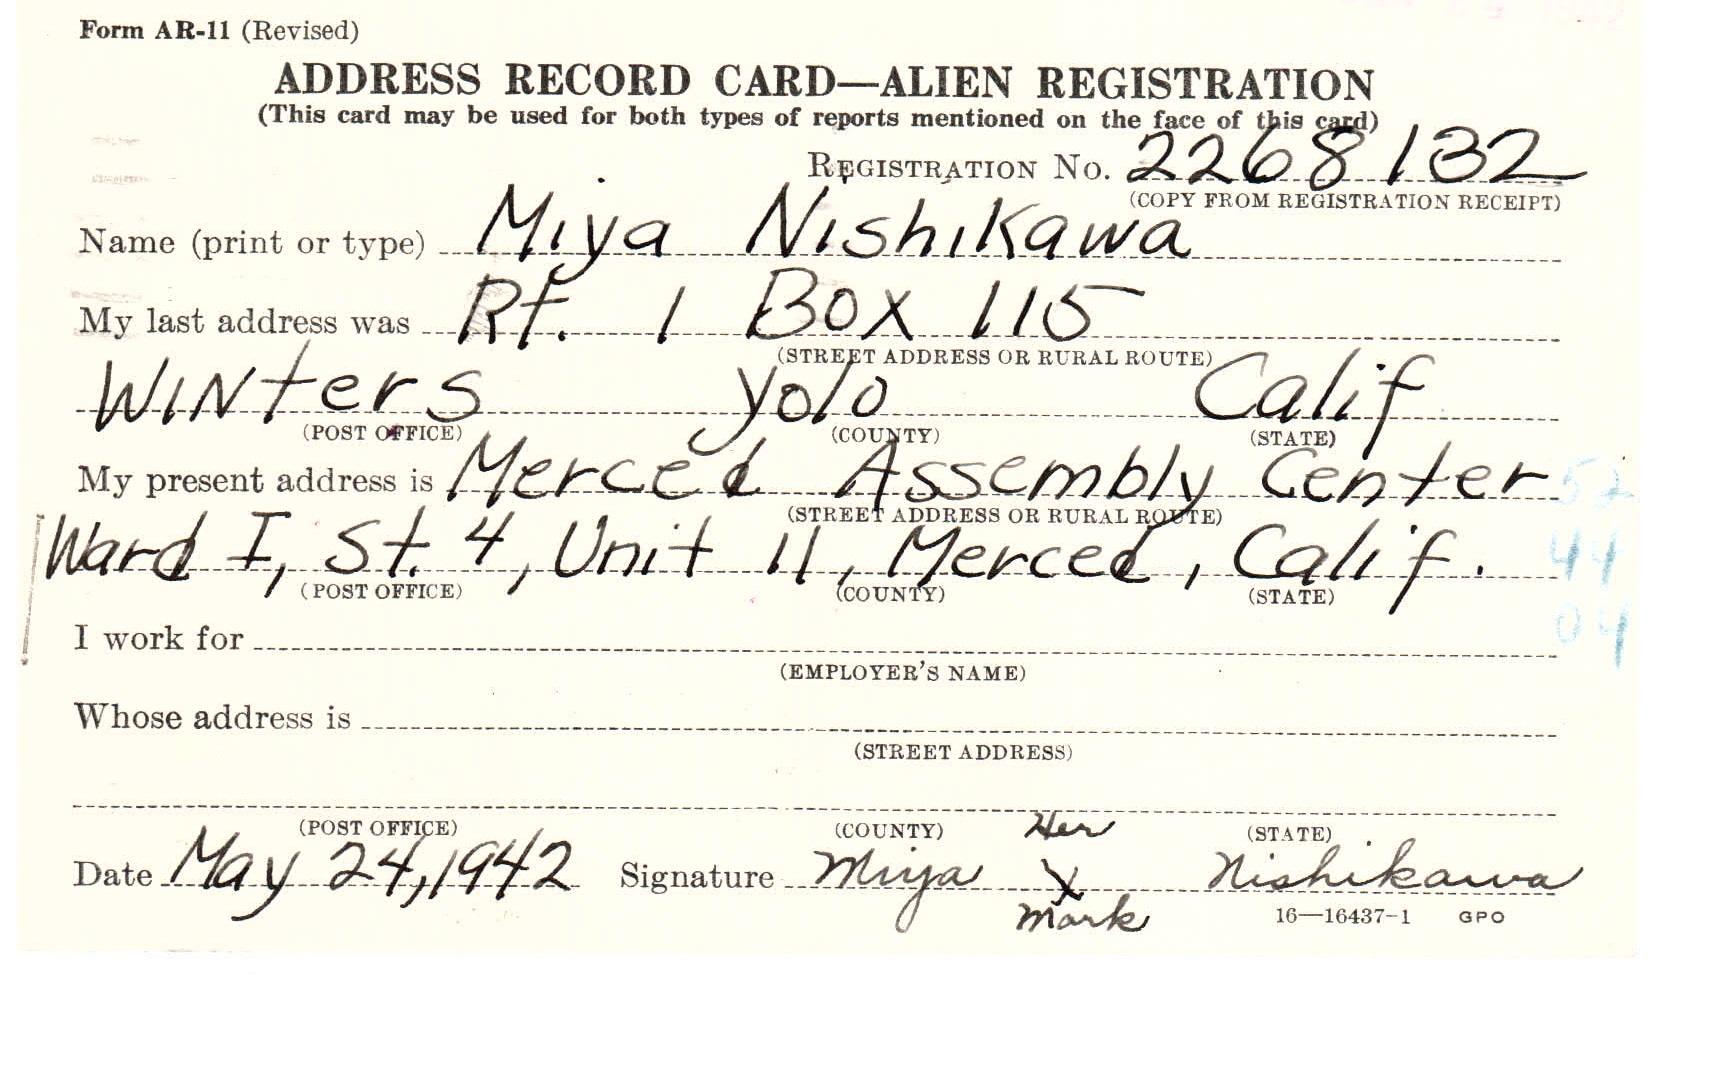 Form AR-11 (Revised)
ADDRESS RECORD CARD—ALIEN REGISTRATION
(This card may be used for both types of reports mentioned on the face of this card)
REGISTRATION No. 2268132
(COPY FROM REGISTRATION RECEIPT)
Name (print or type) Miya Nishikawa
My last address was Rt. 1 Box 115
(STREET ADDRESS OR RURAL ROUTE)
Winters Yolo Calif
(POST OFFICE) (COUNTY) (STATE)
My present address is Merced Assembly Center 52
(STREET ADDRESS OR RURAL ROUTE)
Ward I, St. 4, Unit 11, Merced, Calif. 44
(POST OFFICE) (COUNTY) (STATE)
04
I work for
(EMPLOYER'S NAME)
Whose address is
(STREET ADDRESS)
(POST OFFICE) (COUNTY) (STATE)
Her
Date May 24, 1942 Signature Miya X Nishikawa
mark
16—16437-1 GPO